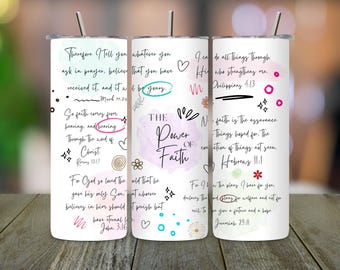 Therefore I tell you, whatever you
ask in prayer, believe that you have
received it, and it will be yours.
Mark 11:24
So faith comes from
hearing, and hearing
through the word of
Christ.
Romans 10:17
For God so loved the world that he
gave his only Son, that whoever
believes in him should not perish but
have eternal life.
John 3:16
THE
Power
OF
Faith
I can do all things through
him who strengthens me.
Philippians 4:13
faith is the assurance
of things hoped for, the
conviction of things not seen.
Hebrews 11:1
For I know the plans I have for you,
declares the Lord, plans for welfare and not for
evil, to give you a future and a hope.
Jeremiah 29:11